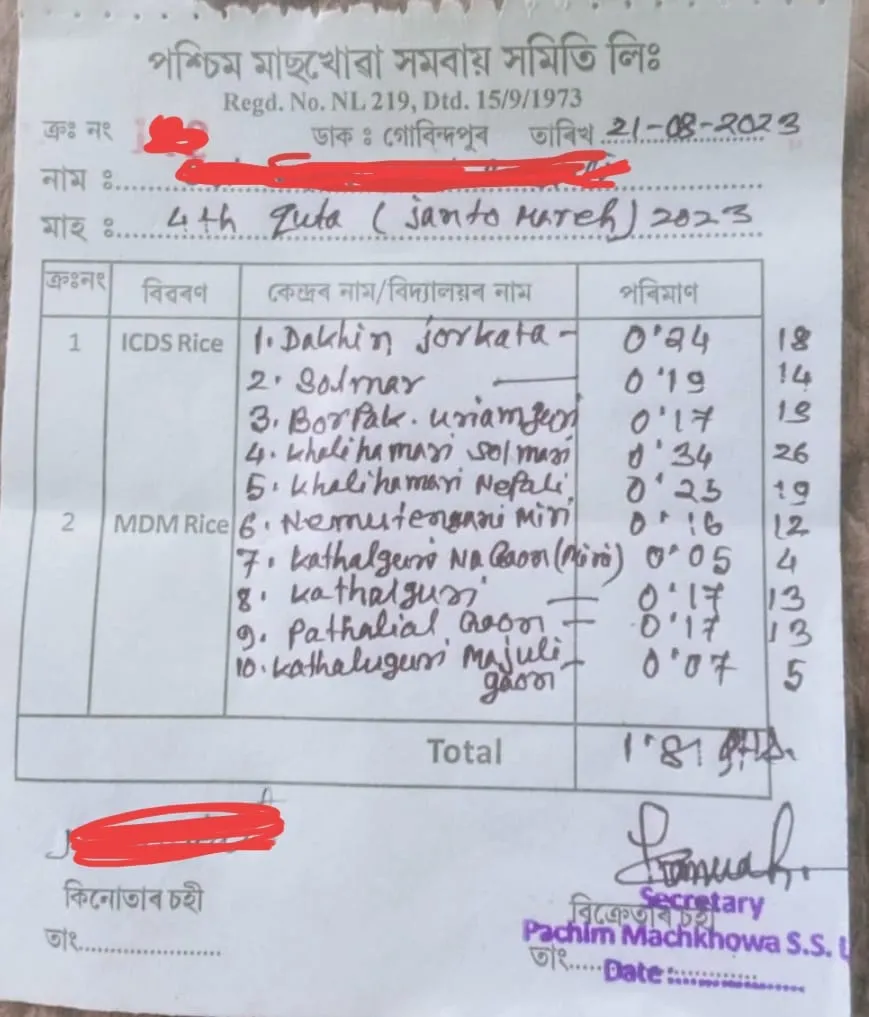 পশ্চিম মাছখোৱা সমবায় সমিতি লিঃ
Regd. No. NL 219, Dtd. 15/9/1973
ক্ৰঃ নং ডাক : গোবিন্দপুৰ তাৰিখ 21-08-2023
নাম :
মাহ : 4th Quta (jan to March) 2023
ক্ৰঃনং বিৱৰণ কেন্দ্ৰৰ নাম/বিদ্যালয়ৰ নাম পৰিমাণ
1 ICDS Rice 1. Dakhin jorkata - 0'24 18
2. Solmar — 0'19 14
3. BorPak. uriamguri 0'17
4. Khalihamari Solmari 0'34 26
5. Khalihamari Nepali 0'25 19
2 MDM Rice 6. Nemutengani Miri 0'16 12
7. Kathalguri Na Gaon (Miri) 0'05 4
8. Kathalguri — 0'17 13
9. Pathalial Gaon — 0'17 13
10. Kathaluguri Majuli - 0'07 5
gaon
Total 1'81
কিনোতাৰ চহী
তাং
Secretary
বিক্ৰেতাৰ চহী
Pachim Machkhowa S.S. L
তাং
Date :